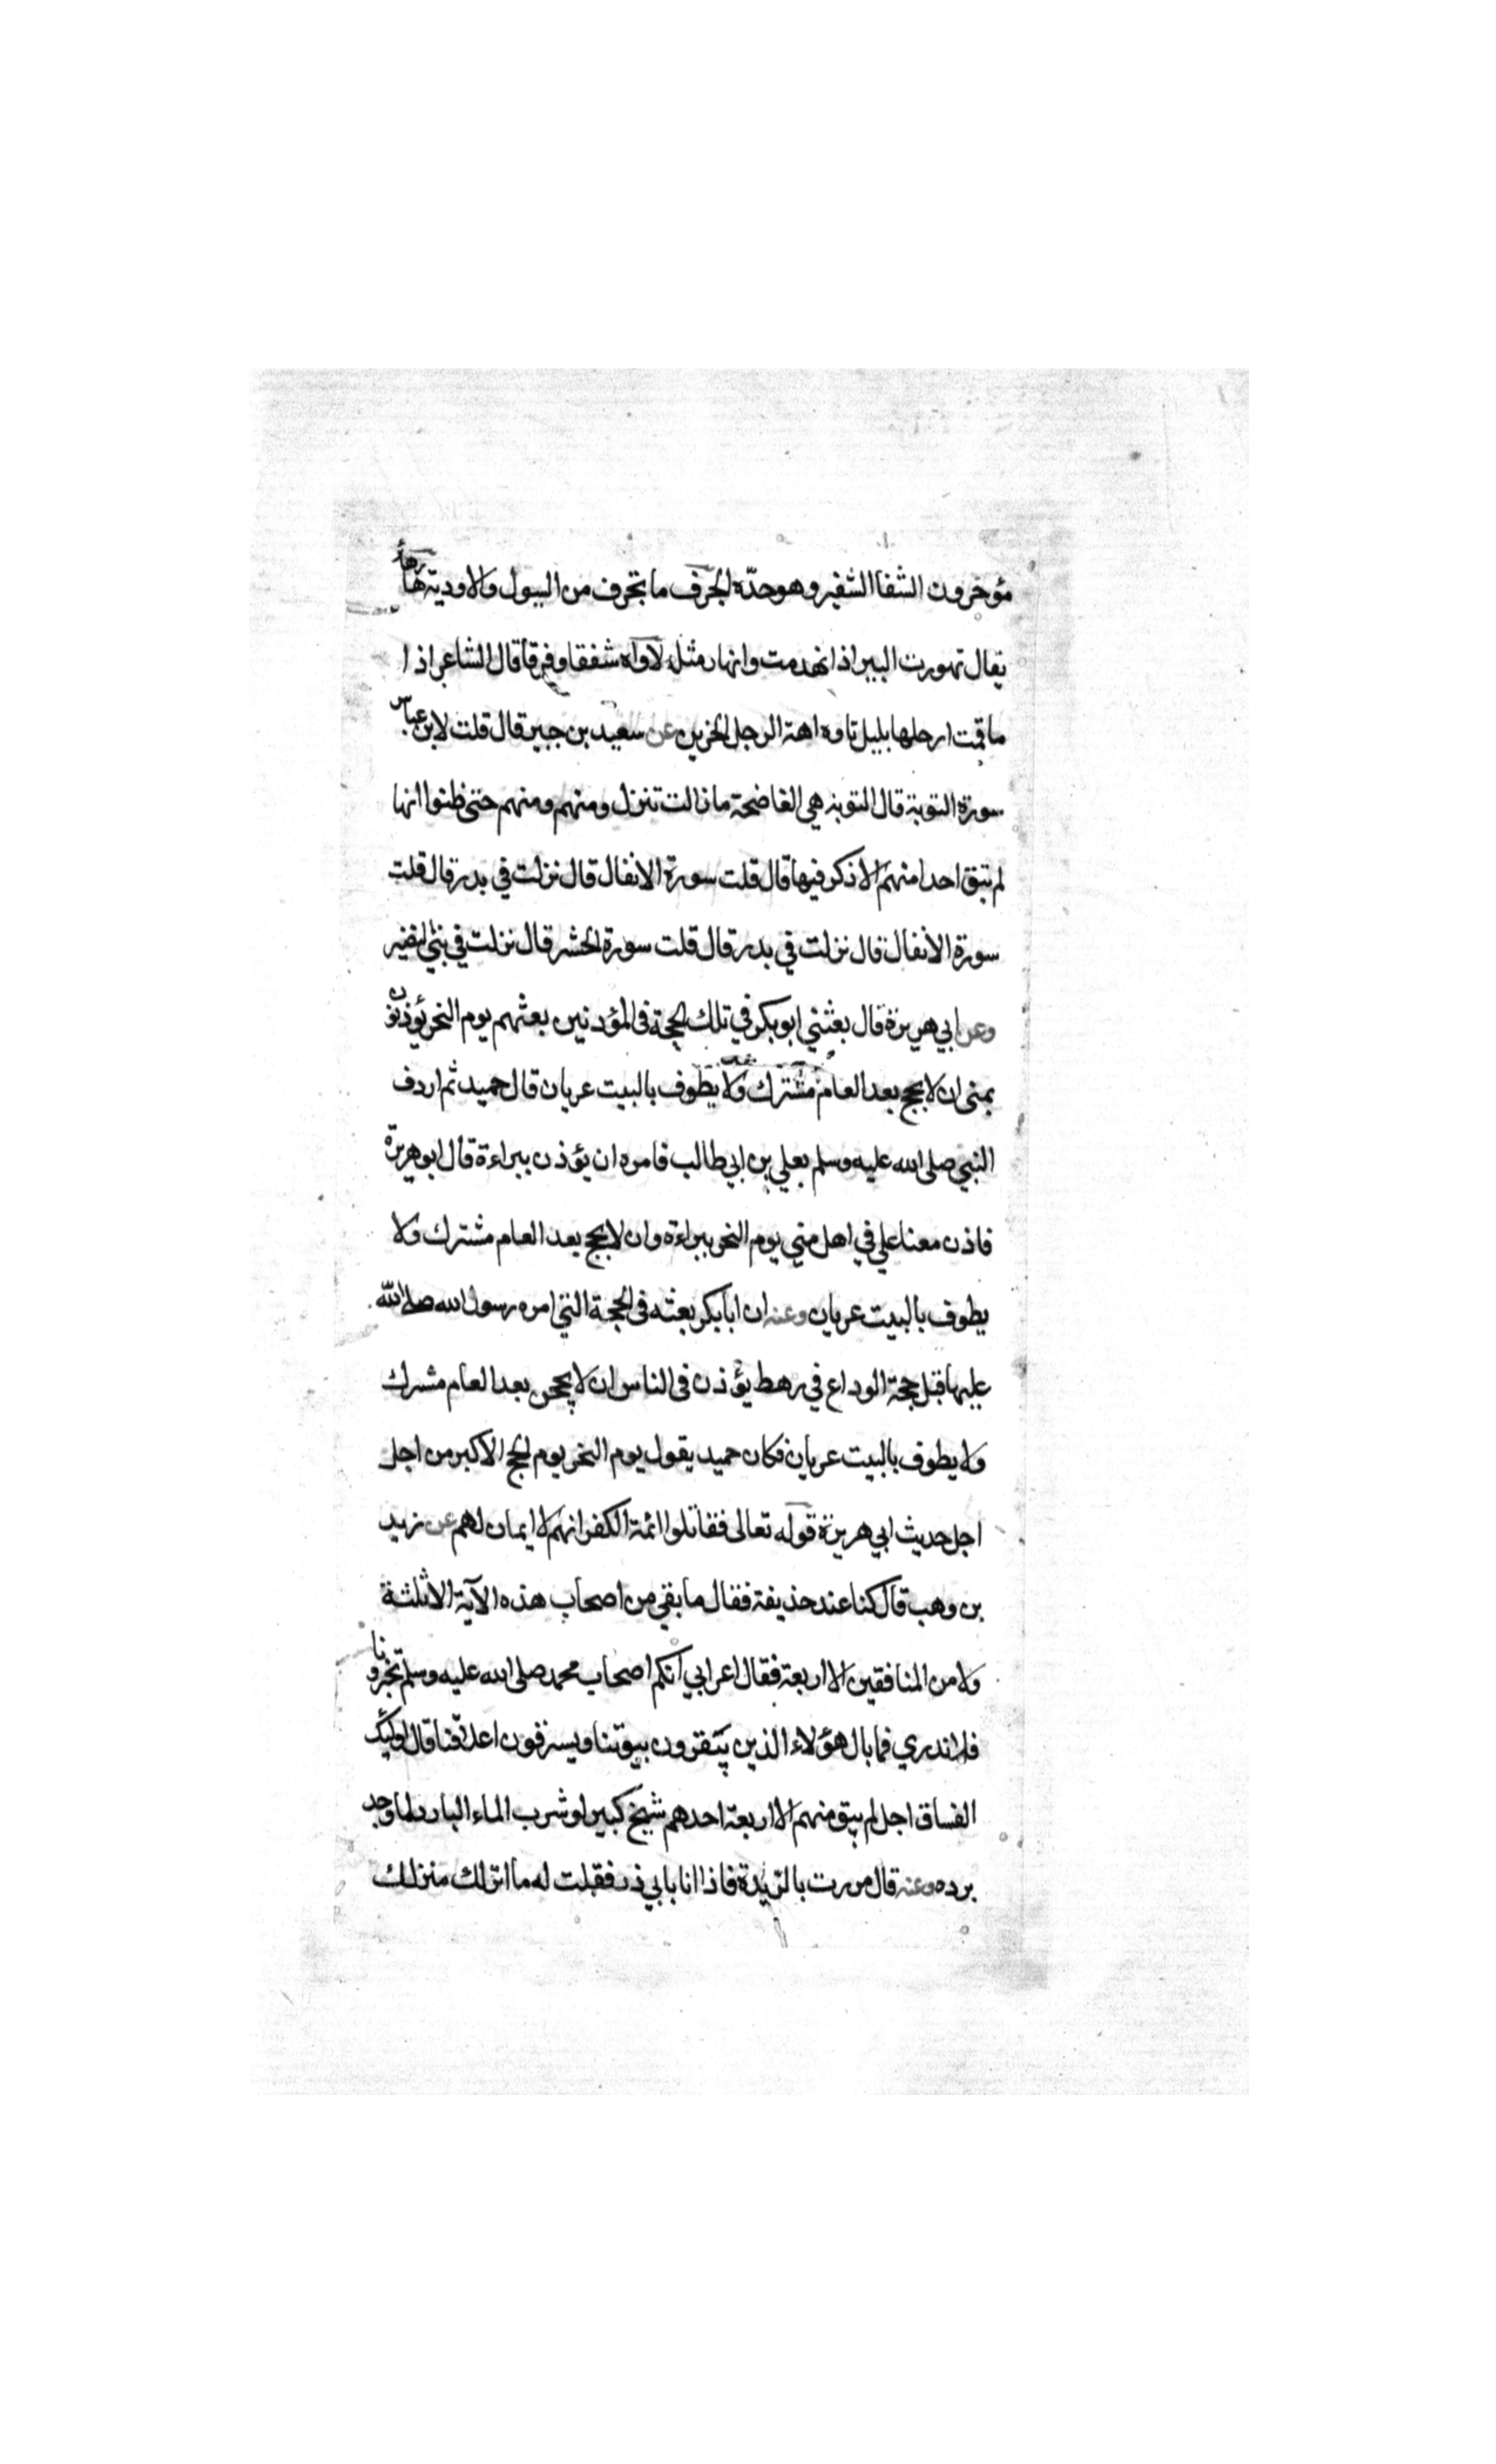 مؤخرون الشفا الشفير وهو حدّه الجرف ما تجرف من السيول والاودية هار هائر
يقال تهورت البير اذا انهدمت وانهار مثله لاواه شفقا وفرقا قال الشاعر اذا
ما قمت ارحلها بليل تاوه اهة الرجل الحزين عن سعيد بن جبير قال قلت لابن عباس
سورة التوبة قال التوبة هي الفاضحة ما زالت تنزل ومنهم ومنهم حتى ظنوا انها
لم تبق احدا منهم الا ذكر فيها قال قلت سورة الانفال قال نزلت في بدر قال قلت
سورة الانفال قال نزلت في بدر قال قلت سورة الحشر قال نزلت في بني النضير
وعن ابي هريرة قال بعثني ابو بكر في تلك الحجة في المؤذنين بعثهم يوم النحر يؤذنون
بمنى ان لا يحج بعد العام مشرك ولا يطوف بالبيت عريان قال حميد ثم اردف
النبي صلى الله عليه وسلم بعلي بن ابي طالب فامره ان يؤذن ببراءة قال ابو هريرة
فاذن معنا علي في اهل منى يوم النحر ببراءة وان لا يحج بعد العام مشرك ولا
يطوف بالبيت عريان وعنه ان ابا بكر بعثه في الحجة التي امره رسول الله صلى الله
عليها قبل حجة الوداع في رهط يؤذن في الناس ان لا يحجن بعد العام مشرك
ولا يطوف بالبيت عريان فكان حميد يقول يوم النحر يوم الحج الاكبر من اجل
اجل حديث ابي هريرة قوله تعالى فقاتلوا ائمة الكفر انهم لا ايمان لهم عن زيد
بن وهب قال كنا عند حذيفة فقال ما بقي من اصحاب هذه الآية الا ثلثة
ولا من المنافقين الا اربعة فقال اعرابي انكم اصحاب محمد صلى الله عليه وسلم تخبرونا
فلا ندري فما بال هؤلاء الذين يبقرون بيوتنا ويسرقون اعلاقنا قال اوليك
الفساق اجل لم يبق منهم الا اربعة احدهم شيخ كبير لو شرب الماء البارد لما وجد
برده وعنه قال مررت بالربذة فاذا انا بابي ذر فقلت له ما انزلك منزلك